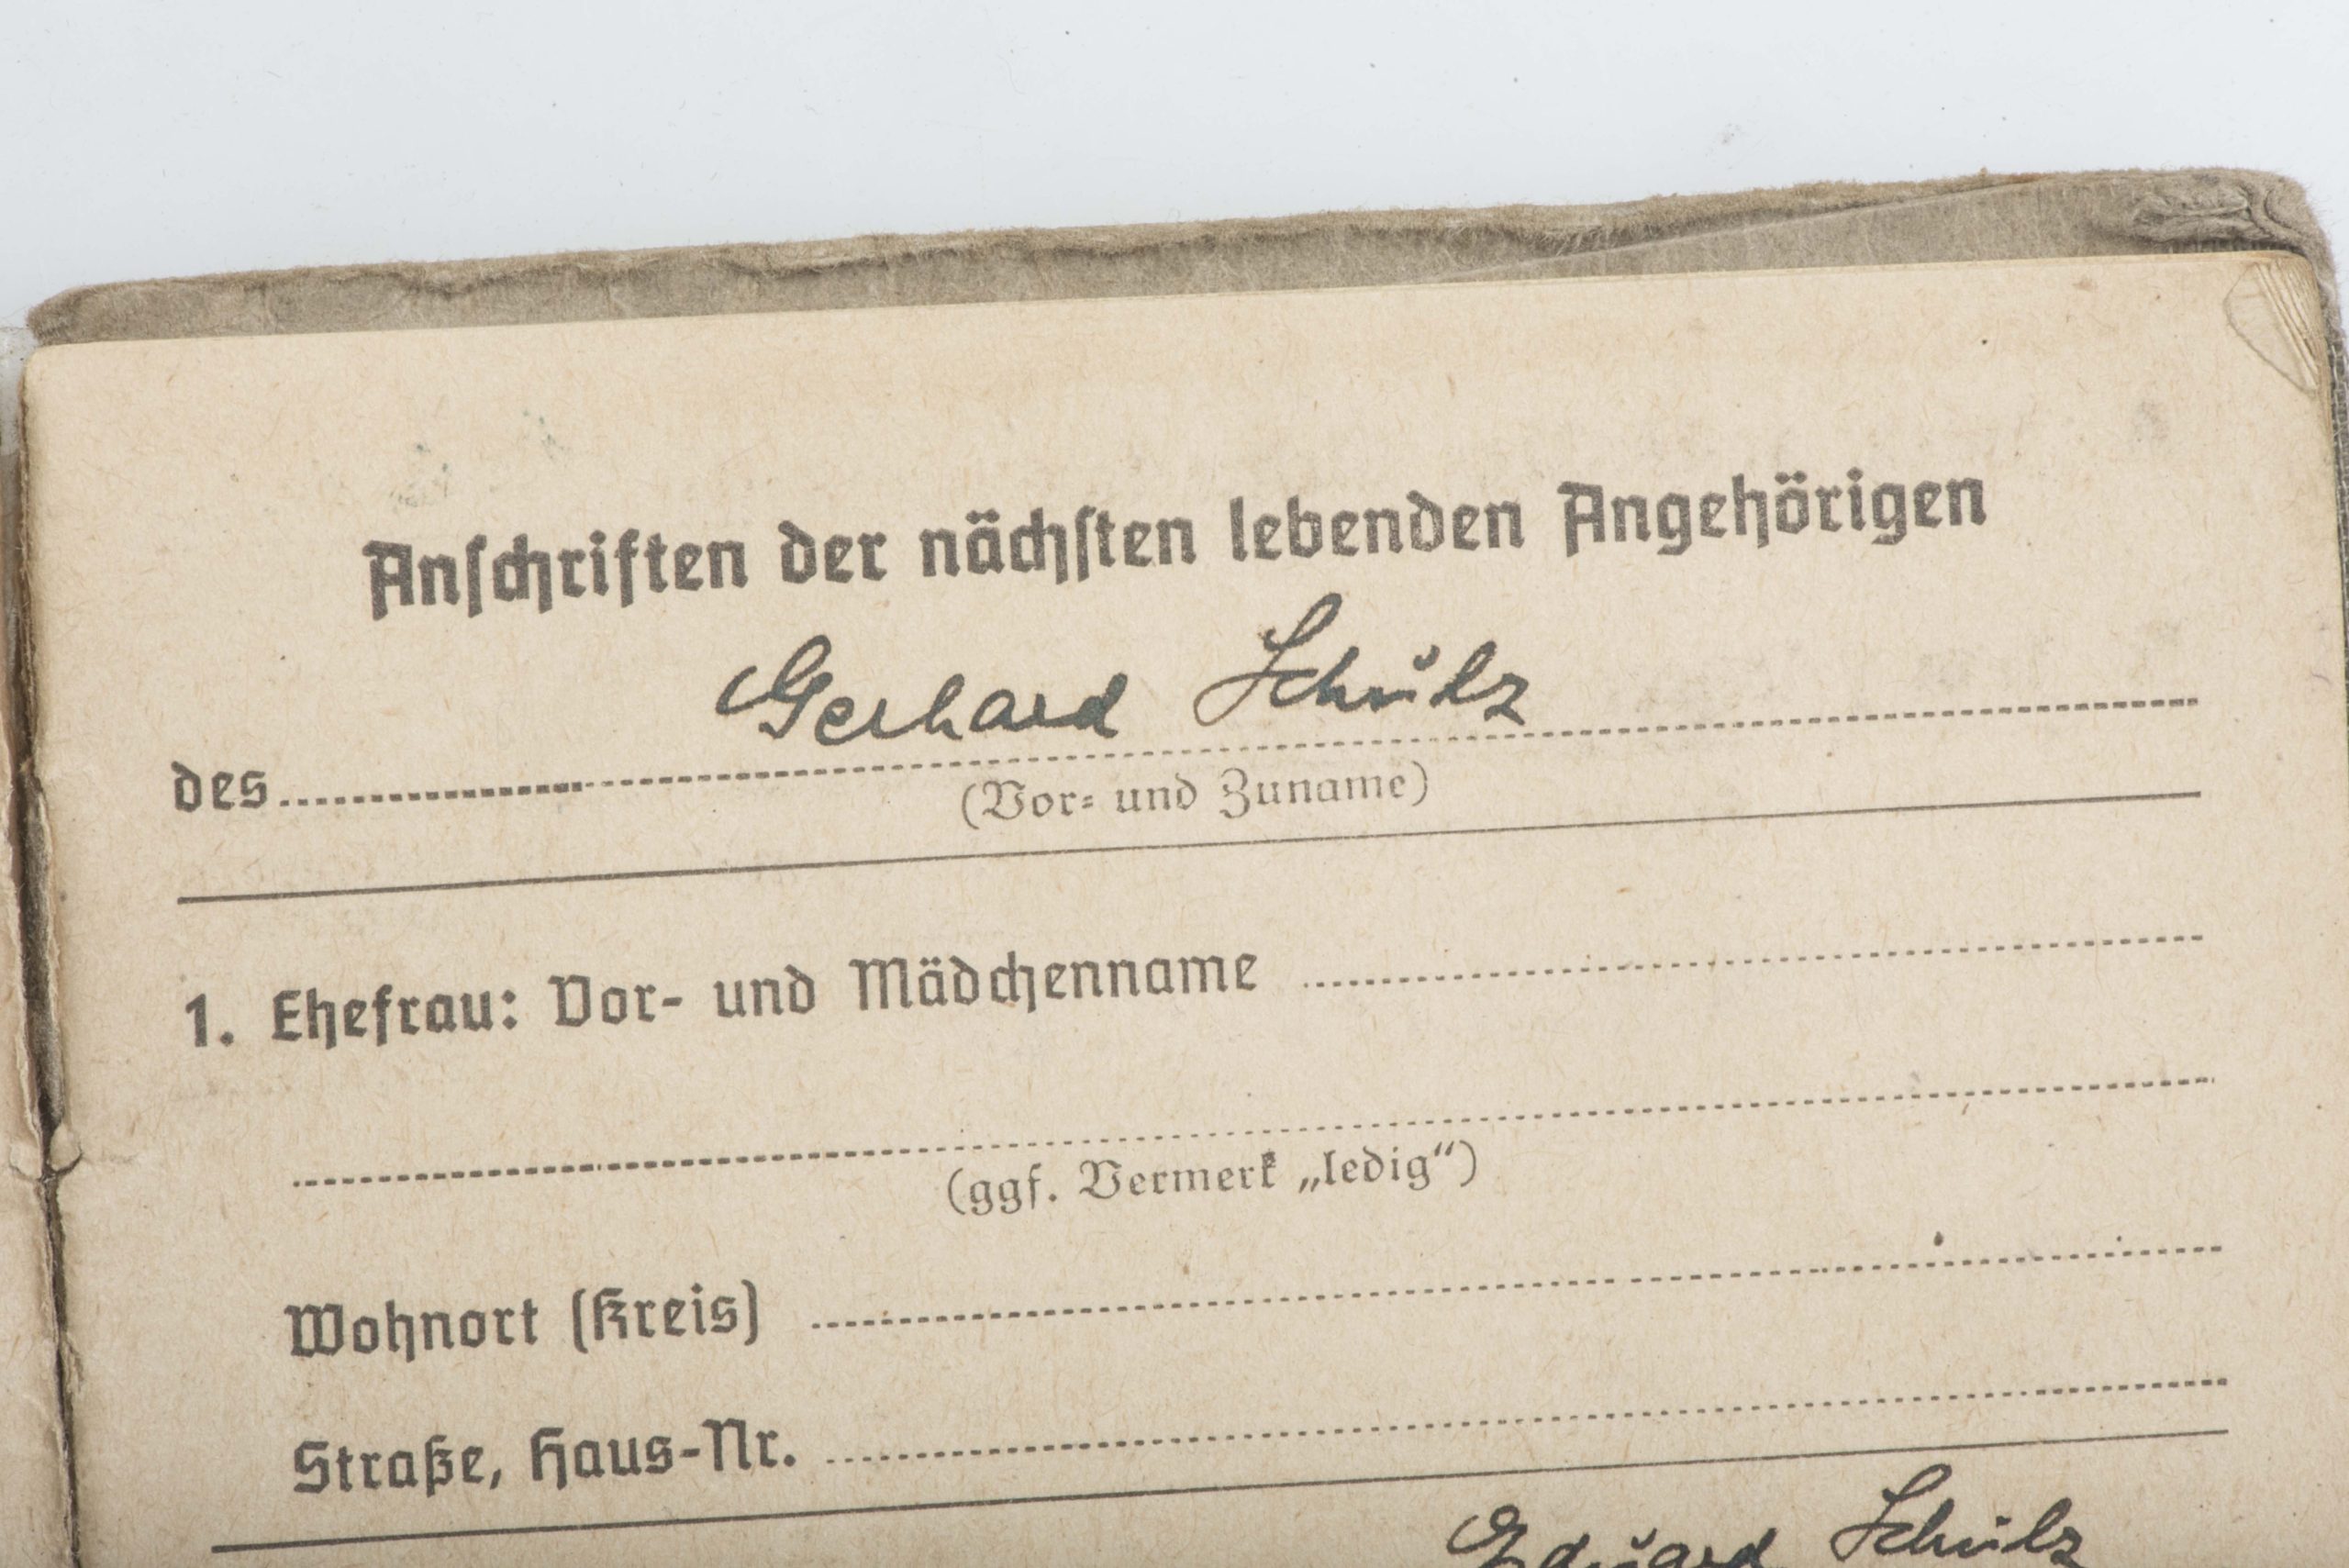 Anschriften der nächsten lebenden Angehörigen
Gerhard Schulz
des
(Vor- und Zuname)
1. Ehefrau: Vor- und Mädchenname
(ggf. Vermerk „ledig“)
Wohnort (Kreis)
Straße, Haus-Nr.
Eduard Schulz